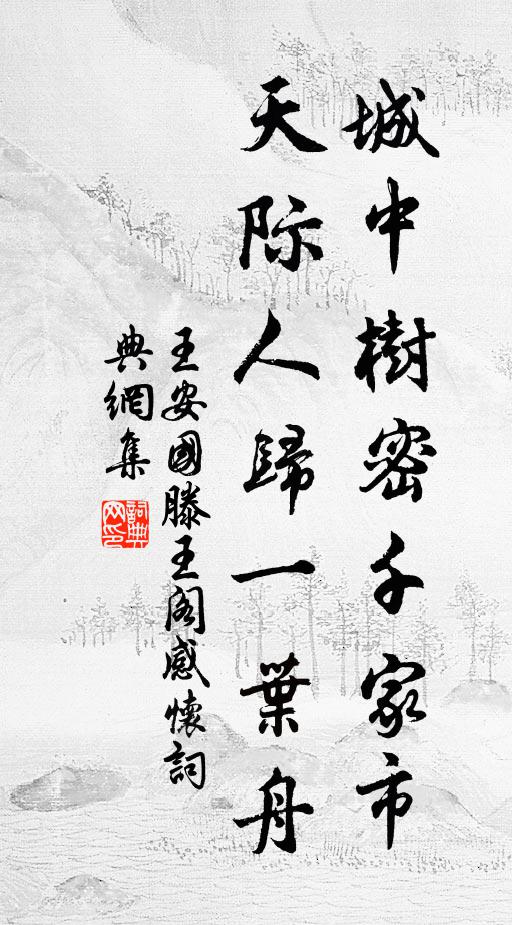 城中樹密千家市
天际人歸一葉舟
王安國滕王阁感懷詞
典網集
詞典网印